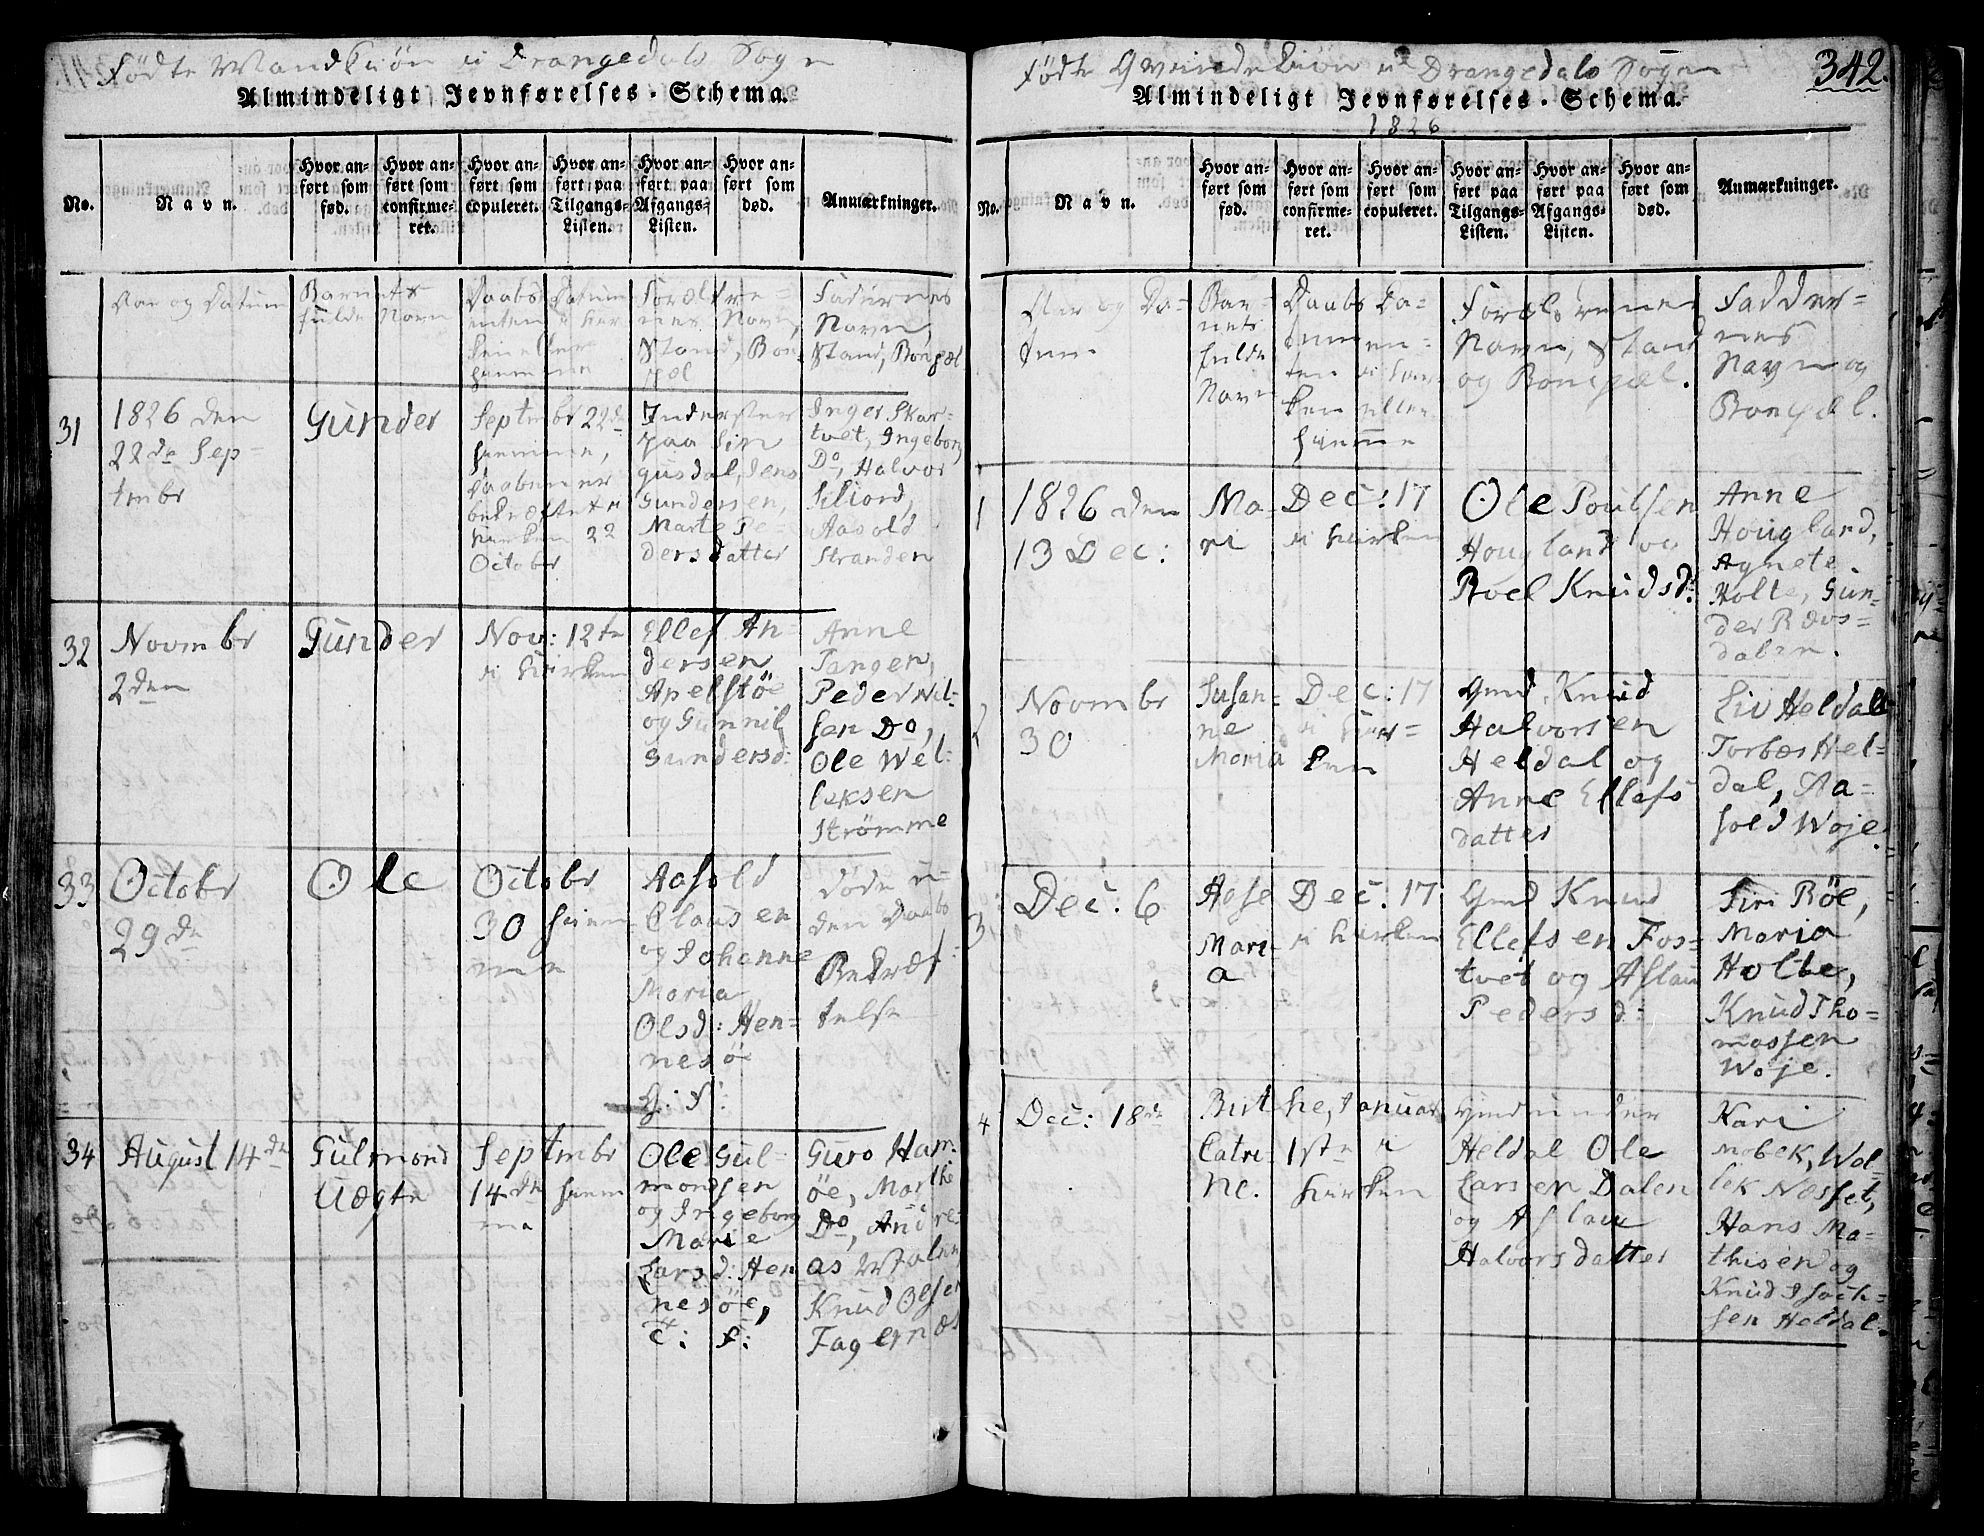 Fødte Mandkiøn i Drangedals Sogn
Almindeligt Jevnførelses-Schema.
No.
Navn.
Hvor anført som fød.
Hvor anført som confirmeret.
Hvor anført som copuleret.
Hvor anført paa Tilgangs-Listen.
Hvor anført paa Afgangs-Listen.
Hvor anført som død.
Anmærkninger.
Aar og Datum
Barnets
fulde Navn
Daabs Datum
enten i kir
ken eller
hiemme
Forældre=
nes Navn,
Stand, Bo
pæl
Faddernes
Navn,
Stand, Bopæl
31
1826 den
22de Sep=
tmbr
Gunder
Septmbr 22de
hiemme,
daaben er
bekræftet i
kirken 22
October
Inderster
paa
gusdal, Jens
Gundersen,
Marte Pe=
dersdatter
Inger Skar=
tvet, Ingeborg
Do, Halvor
Siliord,
Aasold
Stranden
32
Novmbr
2den
Gunder
Nov: 12te
i kirken
Ellef An=
dersen
Apelstöe
og Gunnil
Gundersd:
Anne
Tangen,
Peder Nil=
sen Do,
Ole Wel=
leksen
Strömme
33
Octobr
29de
Ole
Octobr
30 hiem
me
Aasold
Clausen
og Johanne
Maria
Olsd: Hen=
nesöe
G: f:
döde u=
den Daabs
Bekræf=
telse
34
August 14de
Gulmond
Uægte
Septmbr
14de hiem
me
Ole Gul=
mondsen
og Ingeborg
Marie
Larsd: Hen
nesöe,
Guro Ham=
öe, Marthe
Do, Andre=
as
Knud Olsen
Fagernæs
Fødte Qvindekiøn i Drangedals Sogn
342.
Almindeligt Jevnførelses-Schema.
1826
No.
Navn.
Hvor anført som fød.
Hvor anført som confirmeret.
Hvor anført som copuleret.
Hvor anført paa Tilgangs-Listen.
Hvor anført paa Afgangs-Listen.
Hvor anført som død.
Anmærkninger.
Aar og Da=
tum
Bar=
nets
fulde
Navn
Daabs Da=
tum en=
ten i kir=
ken eller
hiemme
Forældrenes
Navn, Stand
og Bopæl.
Fadder=
nes
Navn og
Bopæl.
1
1826 den
13 Dec:
Ma=
ri
Dec: 17
i kirken
Ole Poulsen
Hougland og
Roel Knudsd:
Anne
Hougland,
Agnete
Holte, Gun=
der
dalen.
2
Novmbr
30
Susan=
ne
Maria
Dec: 17
i kir=
ken
Gmd Knud
Halvorsen
Heldal og
Anne Ellefs
datter
Liv Heldal
Torbær Hel=
dal, Aa=
sold Woje.
3
Dec: 6
Aase
Mari=
a
Dec: 17
i kirken
Gmd Knud
Ellefsen Fos=
tvet og Aslau
Pedersd:
Siri Röe,
Maria
Holte,
Knud Tho=
massen
Woje.
4
Dec: 18de
Birthe,
Catri=
ne.
Januar
1ste i
kirken
Gmd under
Heldal Ole
Larsen Dalen
og Aslau
Halvorsdatter
Kari
Mobek, Wol=
lek Næsset,
Hans Ma=
thisen og
Knud Isach=
sen Heldal.